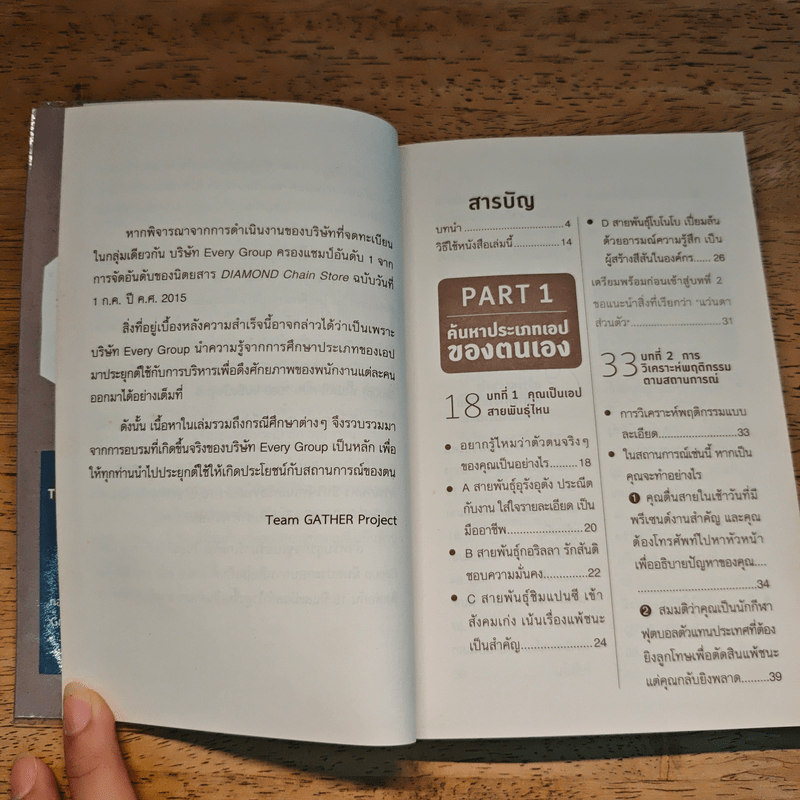 หากพิจารณาจากการดำเนินงานของบริษัทที่จดทะเบียน
ในกลุ่มเดียวกัน บริษัท Every Group ครองแชมป์อันดับ 1 จาก
การจัดอันดับของนิตยสาร DIAMOND Chain Store ฉบับวันที่
1 ก.ค. ปี ค.ศ. 2015
สิ่งที่อยู่เบื้องหลังความสำเร็จนี้อาจกล่าวได้ว่าเป็นเพราะ
บริษัท Every Group นำความรู้จากการศึกษาประเภทของเอป
มาประยุกต์ใช้กับการบริหารเพื่อดึงศักยภาพของพนักงานแต่ละคน
ออกมาได้อย่างเต็มที่
ดังนั้น เนื้อหาในเล่มรวมถึงกรณีศึกษาต่างๆ จึงรวบรวมมา
จากการอบรมที่เกิดขึ้นจริงของบริษัท Every Group เป็นหลัก เพื่อ
ให้ทุกท่านนำไปประยุกต์ใช้ให้เกิดประโยชน์กับสถานการณ์ของตน
Team GATHER Project
สารบัญ
บทนำ ........................ 4
วิธีใช้หนังสือเล่มนี้ ............... 14
PART 1
ค้นหาประเภทเอป
ของตนเอง
18 บทที่ 1 คุณเป็นเอป
สายพันธุ์ไหน
• อยากรู้ไหมว่าตัวตนจริงๆ
ของคุณเป็นอย่างไร.........18
• A สายพันธุ์อุรังอุตัง ประณีต
กับงาน ใส่ใจรายละเอียด เป็น
มืออาชีพ........................20
• B สายพันธุ์กอริลลา รักสันติ
ชอบความมั่นคง..............22
• C สายพันธุ์ชิมแปนซี เข้า
สังคมเก่ง เน้นเรื่องแพ้ชนะ
เป็นสำคัญ......................24
• D สายพันธุ์โบโนโบ เปี่ยมล้น
ด้วยอารมณ์ความรู้สึก เป็น
ผู้สร้างสีสันในองค์กร...... 26
เตรียมพร้อมก่อนเข้าสู่บทที่ 2
ขอแนะนำสิ่งที่เรียกว่า "แว่นตา
ส่วนตัว"..........................31
33 บทที่ 2 การ
วิเคราะห์พฤติกรรม
ตามสถานการณ์
• การวิเคราะห์พฤติกรรมแบบ
ละเอียด........................33
• ในสถานการณ์เช่นนี้ หากเป็น
คุณจะทำอย่างไร
❶ คุณตื่นสายในเช้าวันที่มี
พรีเซนต์งานสำคัญ และคุณ
ต้องโทรศัพท์ไปหาหัวหน้า
เพื่ออธิบายปัญหาของคุณ....
..................................34
❷ สมมติว่าคุณเป็นนักกีฬา
ฟุตบอลตัวแทนประเทศที่ต้อง
ยิงลูกโทษเพื่อตัดสินแพ้ชนะ
แต่คุณกลับยิงพลาด.........39